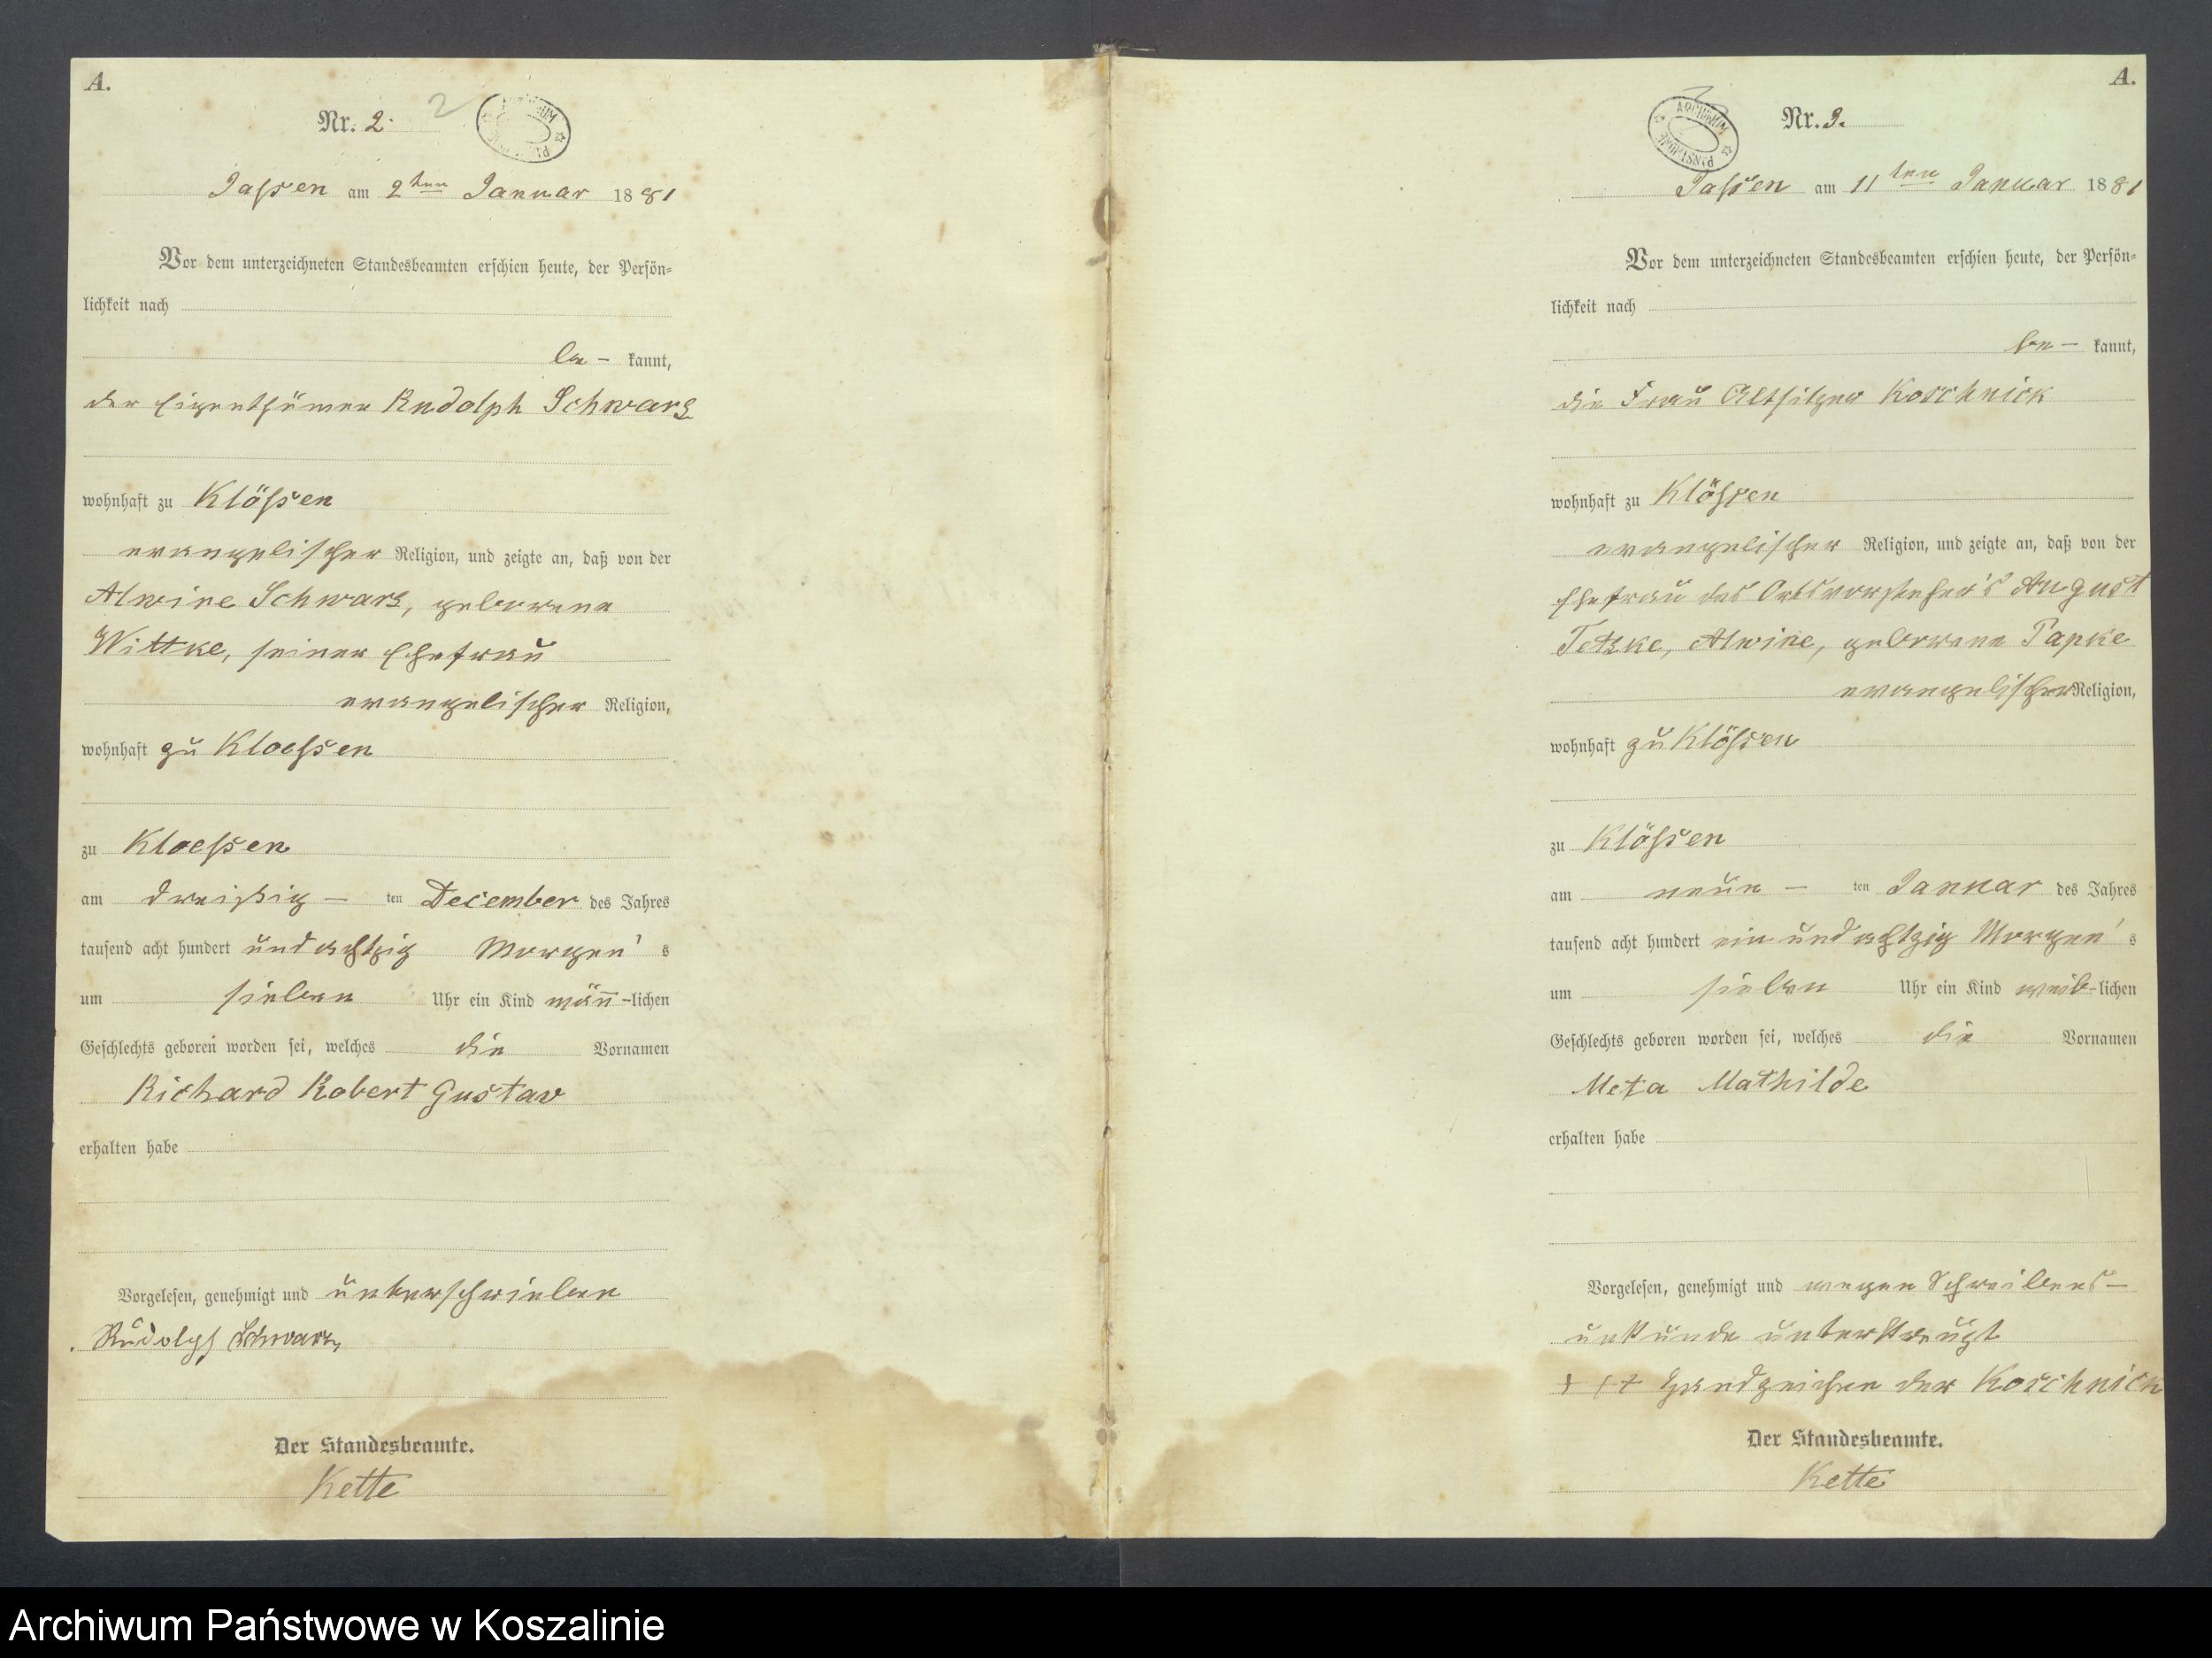 A.
Nr. 2. 2
Jassen am 2ten Januar 1881
Vor dem unterzeichneten Standesbeamten erschien heute, der Persön=
lichkeit nach
be- kannt,
der Eigenthümer Rudolph Schwarz
wohnhaft zu Klössen
evangelischer Religion, und zeigte an, daß von der
Alwine Schwarz, geborene
Wittke, seiner Ehefrau
evangelischer Religion,
wohnhaft zu Kloessen
zu Kloessen
am dreißig - ten December des Jahres
tausend acht hundert und achtzig Morgen's
um sieben Uhr ein Kind männ-lichen
Geschlechts geboren worden sei, welches die Vornamen
Richard Robert Gustav
erhalten habe
Vorgelesen, genehmigt und unterschrieben
Rudolph Schwarz
Der Standesbeamte.
Kette
A.
ARCHIWUM PAŃSTWOWE
Nr. 3.
Jassen am 11ten Januar 1881
Vor dem unterzeichneten Standesbeamten erschien heute, der Persön=
lichkeit nach
be- kannt,
die Frau Altsitzer Koschnick
wohnhaft zu Klössen
evangelischer Religion, und zeigte an, daß von der
Ehefrau des Ortsvorsteher's August
Tetzke, Alwine, geborene Papke
evangelischer Religion,
wohnhaft zu Klössen
zu Klössen
am neun - ten Januar des Jahres
tausend acht hundert ein und achtzig Morgen's
um sieben Uhr ein Kind weib-lichen
Geschlechts geboren worden sei, welches die Vornamen
Meta Mathilde
erhalten habe
Vorgelesen, genehmigt und wegen Schreibens-
unkunde unterkreuzt
+ + + Handzeichen der Koschnick
Der Standesbeamte.
Kette
Archiwum Państwowe w Koszalinie